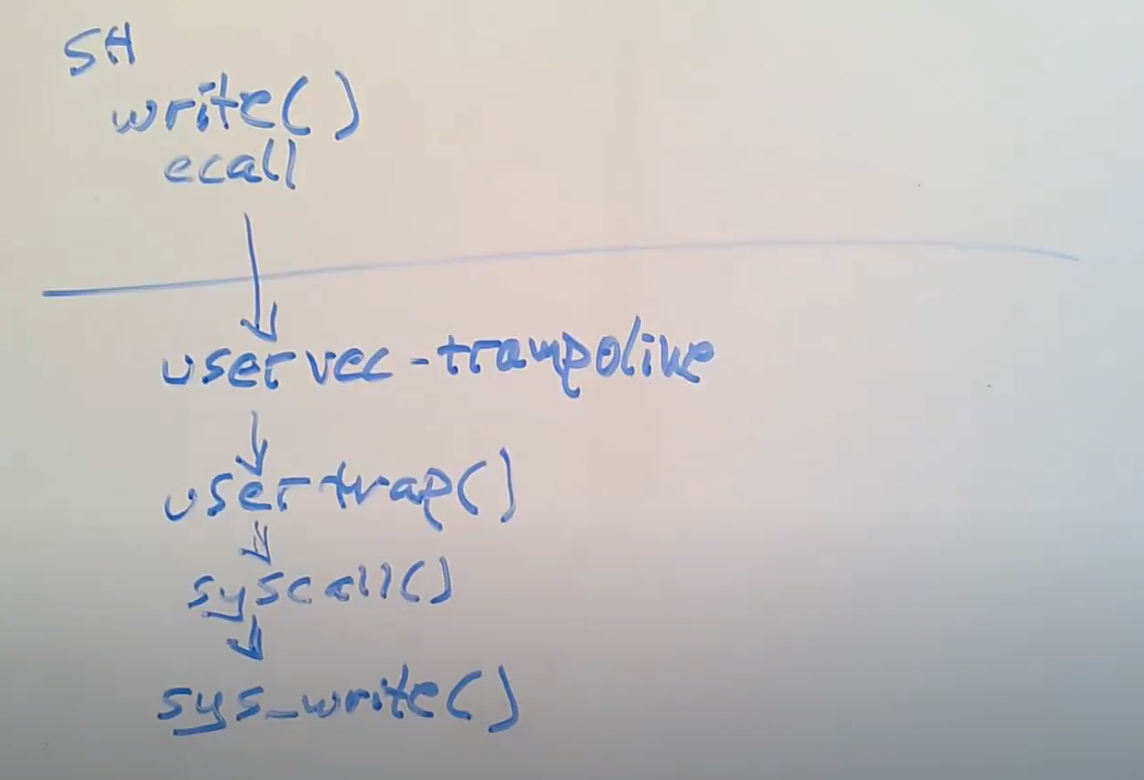 SH
write()
ecall
uservec-trampoline
usertrap()
syscall()
sys_write()